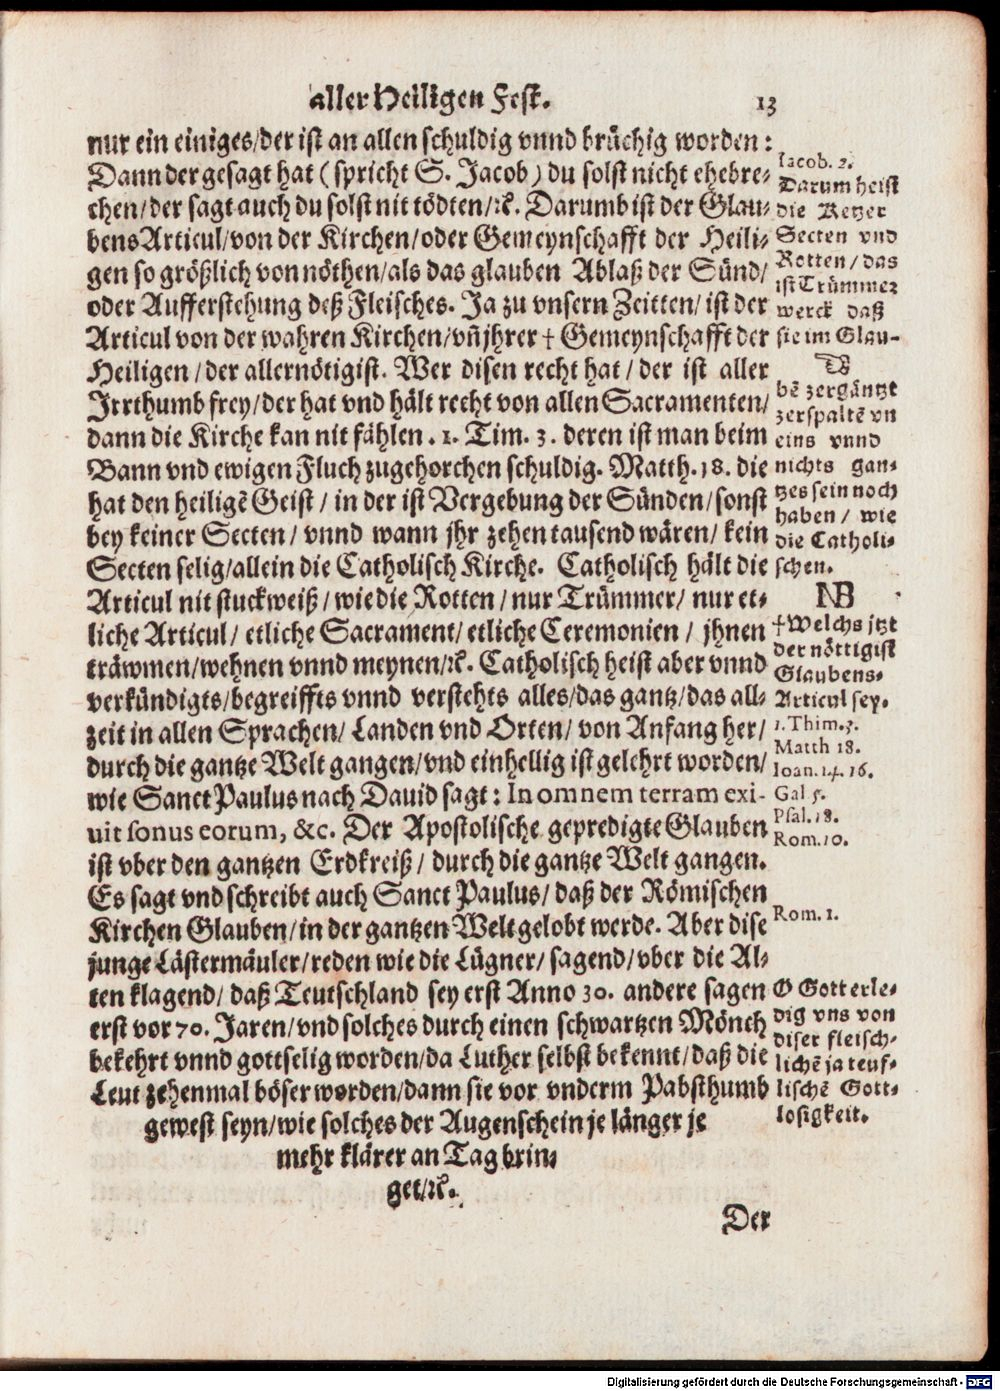 aller Heiligen Fest. 13
nur ein einiges/der ist an allen schuldig vnnd brüchig worden:
Dann der gesagt hat (spricht S. Jacob) du solst nicht ehebre⸗
chen/der sagt auch du solst nit tödten/ꝛc. Darumb ist der Glau⸗
bens Articul/von der Kirchen/oder Gemeynschafft der Heili⸗
gen so größlich von nöthen/als das glauben Ablaß der Sünd/
oder Aufferstehung deß Fleisches. Ja zu vnsern Zeitten/ist der
Articul von der wahren Kirchen/vñ jhrer † Gemeynschafft der
Heiligen/der allernötigist. Wer disen recht hat/der ist aller
Irrthumb frey/der hat vnd hält recht von allen Sacramenten/
dann die Kirche kan nit fählen. 1. Tim. 3. deren ist man beim
Bann vnd ewigen Fluch zugehorchen schuldig. Matth. 18. die
hat den heiligẽ Geist/in der ist Vergebung der Sünden/sonst
bey keiner Secten/vnnd wann jhr zehen tausend wären/kein
Secten selig/allein die Catholisch Kirche. Catholisch hält die
Articul nit stuckweiß/wie die Rotten/nur Trümmer/nur et⸗
liche Articul/etliche Sacrament/etliche Ceremonien/jhnen
träwmen/wehnen vnnd meynen/ꝛc. Catholisch heist aber vnnd
verkündigts/begreiffts vnnd verstehts alles/das gantz/das all⸗
zeit in allen Sprachen/Landen vnd Orten/von Anfang her/
durch die gantze Welt gangen/vnd einhellig ist gelehrt worden/
wie Sanct Paulus nach Dauid sagt: In omnem terram exi-
uit sonus eorum, &c. Der Apostolische gepredigte Glauben
ist vber den gantzen Erdkreiß/durch die gantze Welt gangen.
Es sagt vnd schreibt auch Sanct Paulus/daß der Römischen
Kirchen Glauben/in der gantzen Welt gelobt werde. Aber dise
junge Lästermäuler/reden wie die Lügner/sagend/vber die Al⸗
ten klagend/daß Teutschland sey erst Anno 30. andere sagen
erst vor 70. Jaren/vnd solches durch einen schwartzen Mönch
bekehrt vnnd gottselig worden/da Luther selbst bekennt/daß die
Leut zehenmal böser worden/dann sie vor vnderm Pabsthumb
gewest seyn/wie solches der Augenschein je länger je
mehr klärer an Tag brin⸗
get/ꝛc.
Der
Iacob. 2.
Darum heist
die Ketzer
Secten vnd
Rotten/das
ist Trümmer
werck daß
sie im Glau-
bẽ zergäntzt
zerspaltẽ vn
eins vnnd
nichts gan⸗
tzes sein noch
haben/wie
die Catholi⸗
schen.
NB
†Welchs jtzt
der nöttigist
Glaubens⸗
Articul sey.
1. Thim. 3.
Matth 18.
Ioan. 14. 16.
Gal 5.
Psal. 18.
Rom. 10.
Rom. 1.
O Gott erle⸗
dig vns von
diser fleisch⸗
lichẽ ja teuf⸗
lischẽ Gott⸗
losigkeit.
Digitalisierung gefördert durch die Deutsche Forschungsgemeinschaft - DFG